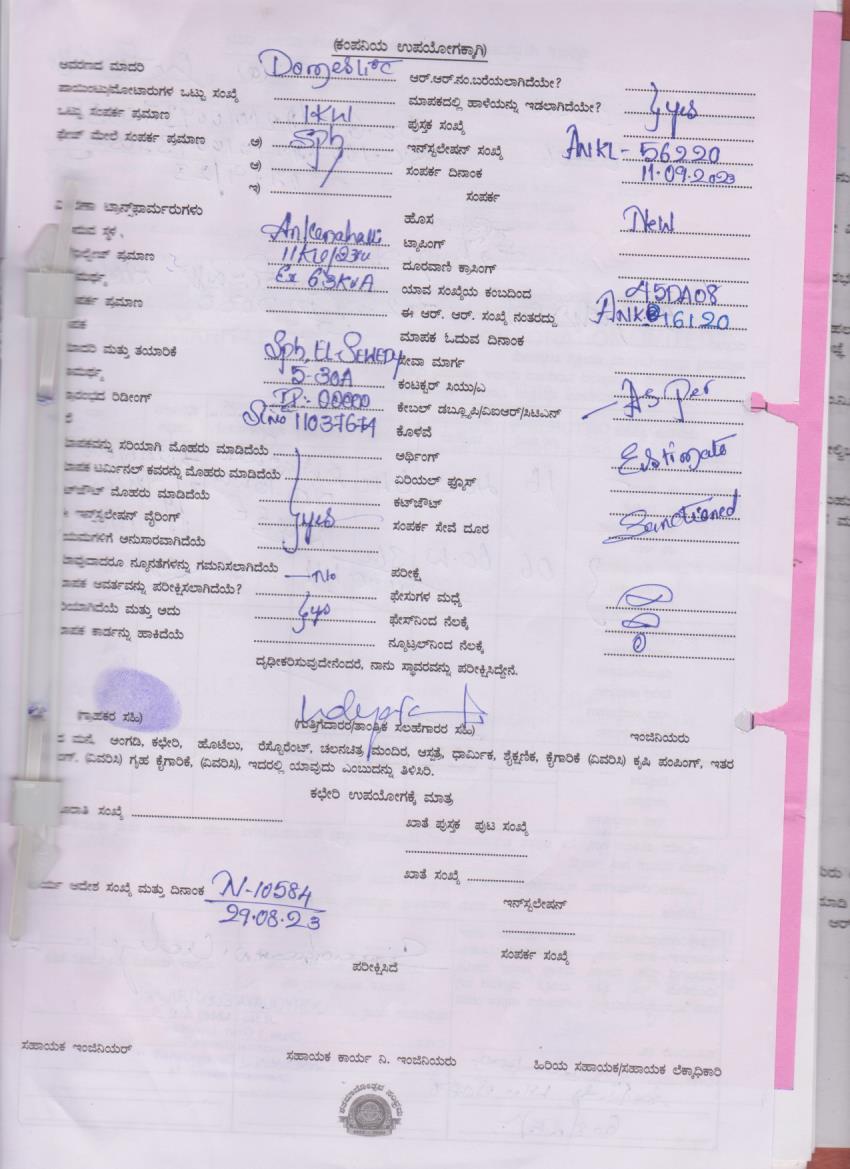 (ಕಂಪನಿಯ ಉಪಯೋಗಕ್ಕಾಗಿ)
ಆವರಣದ ಮಾದರಿ Domestic ಆರ್.ಆರ್.ನಂ.ಬರೆಯಲಾಗಿದೆಯೇ?
ಪಾಯಿಂಟು/ಮೋಟಾರುಗಳ ಒಟ್ಟು ಸಂಖ್ಯೆ ಮಾಪಕದಲ್ಲಿ ಹಾಳೆಯನ್ನು ಇಡಲಾಗಿದೆಯೇ? yes
ಒಟ್ಟು ಸಂಪರ್ಕ ಪ್ರಮಾಣ 1KW ಪುಸ್ತಕ ಸಂಖ್ಯೆ
ಫೇಜ್ ಮೇಲೆ ಸಂಪರ್ಕ ಪ್ರಮಾಣ ಅ) Sph ಇನ್‌ಸ್ಟಲೇಷನ್ ಸಂಖ್ಯೆ ANKL-56220
ಆ) ಸಂಪರ್ಕ ದಿನಾಂಕ 11.09.2023
ಇ) ಸಂಪರ್ಕ
ಟ್ರಾನ್ಸ್‌ಫಾರ್ಮರುಗಳು ಹೊಸ New
ಸ್ಥಳ Ankenahalli ಟ್ಯಾಪಿಂಗ್
ಪ್ರಮಾಣ 11KV/ ದೂರವಾಣಿ ಕ್ರಾಸಿಂಗ್
Ex 63KVA ಯಾವ ಸಂಖ್ಯೆಯ ಕಂಬದಿಂದ 45DA08
ಪ್ರಮಾಣ ಈ ಆರ್. ಆರ್. ಸಂಖ್ಯೆ ನಂತರದ್ದು 16120
ಮಾಪಕ ಓದುವ ದಿನಾಂಕ
ಮತ್ತು ತಯಾರಿಕೆ Sph, EL-SEWEDY ಸೇವಾ ಮಾರ್ಗ
5-30A ಕಂಟಕ್ಟರ್ ಸಿಯು/ಎ As Per
ರಿಡೀಂಗ್ IR:- 00000 ಕೇಬಲ್ ಡಬ್ಲ್ಯೂಪಿ/ಎಐಆರ್/ಸಿಟಿಎನ್
Sl no 11037674 ಕೊಳವೆ
ಸರಿಯಾಗಿ ಮೊಹರು ಮಾಡಿದೆಯೆ ಅರ್ಥಿಂಗ್ Estimate
ಟರ್ಮಿನಲ್ ಕವರನ್ನು ಮೊಹರು ಮಾಡಿದೆಯೆ ಏರಿಯಲ್ ಫ್ಯೂಸ್
ಮೊಹರು ಮಾಡಿದೆಯೆ ಕಟ್‌ಔಟ್
ಇನ್‌ಸ್ಟಲೇಷನ್ ವೈರಿಂಗ್ yes ಸಂಪರ್ಕ ಸೇವೆ ದೂರ Sanctioned
ಅನುಸಾರವಾಗಿದೆಯೆ
ನ್ಯೂನತೆಗಳನ್ನು ಗಮನಿಸಲಾಗಿದೆಯೆ No ಪರೀಕ್ಷೆ
ಆವರ್ತವನ್ನು ಪರೀಕ್ಷಿಸಲಾಗಿದೆಯೆ? ಫೇಸುಗಳ ಮಧ್ಯೆ
ಮತ್ತು ಅದು yes ಫೇಸ್‌ನಿಂದ ನೆಲಕ್ಕೆ
ಕಾರ್ಡನ್ನು ಹಾಕಿದೆಯೆ ನ್ಯೂಟ್ರಲ್‌ನಿಂದ ನೆಲಕ್ಕೆ
ದೃಢೀಕರಿಸುವುದೇನೆಂದರೆ, ನಾನು ಸ್ಥಾವರವನ್ನು ಪರೀಕ್ಷಿಸಿದ್ದೇನೆ.
(ಗ್ರಾಹಕರ ಸಹಿ) (ಗುತ್ತಿಗೆದಾರರ/ತಾಂತ್ರಿಕ ಸಲಹೆಗಾರರ ಸಹಿ) ಇಂಜಿನಿಯರು
ಮನೆ, ಅಂಗಡಿ, ಕಛೇರಿ, ಹೊಟೆಲು, ರೆಸ್ಟೋರೆಂಟ್, ಚಲನಚಿತ್ರ ಮಂದಿರ, ಆಸ್ಪತ್ರೆ, ಧಾರ್ಮಿಕ, ಶೈಕ್ಷಣಿಕ, ಕೈಗಾರಿಕೆ (ವಿವರಿಸಿ) ಕೃಷಿ ಪಂಪಿಂಗ್, ಇತರ
(ವಿವರಿಸಿ) ಗೃಹ ಕೈಗಾರಿಕೆ, (ವಿವರಿಸಿ), ಇದರಲ್ಲಿ ಯಾವುದು ಎಂಬುದನ್ನು ತಿಳಿಸಿರಿ.
ಕಛೇರಿ ಉಪಯೋಗಕ್ಕೆ ಮಾತ್ರ
ಸಂಖ್ಯೆ ಖಾತೆ ಪುಸ್ತಕ ಪುಟ ಸಂಖ್ಯೆ
ಖಾತೆ ಸಂಖ್ಯೆ
ಆದೇಶ ಸಂಖ್ಯೆ ಮತ್ತು ದಿನಾಂಕ N-10584
29.08.23
ಇನ್‌ಸ್ಟಲೇಷನ್
ಸಂಪರ್ಕ ಸಂಖ್ಯೆ
ಪರೀಕ್ಷಿಸಿದೆ
ಸಹಾಯಕ ಇಂಜಿನಿಯರ್ ಸಹಾಯಕ ಕಾರ್ಯ ನಿ. ಇಂಜಿನಿಯರು ಹಿರಿಯ ಸಹಾಯಕ/ಸಹಾಯಕ ಲೆಕ್ಕಾಧಿಕಾರಿ